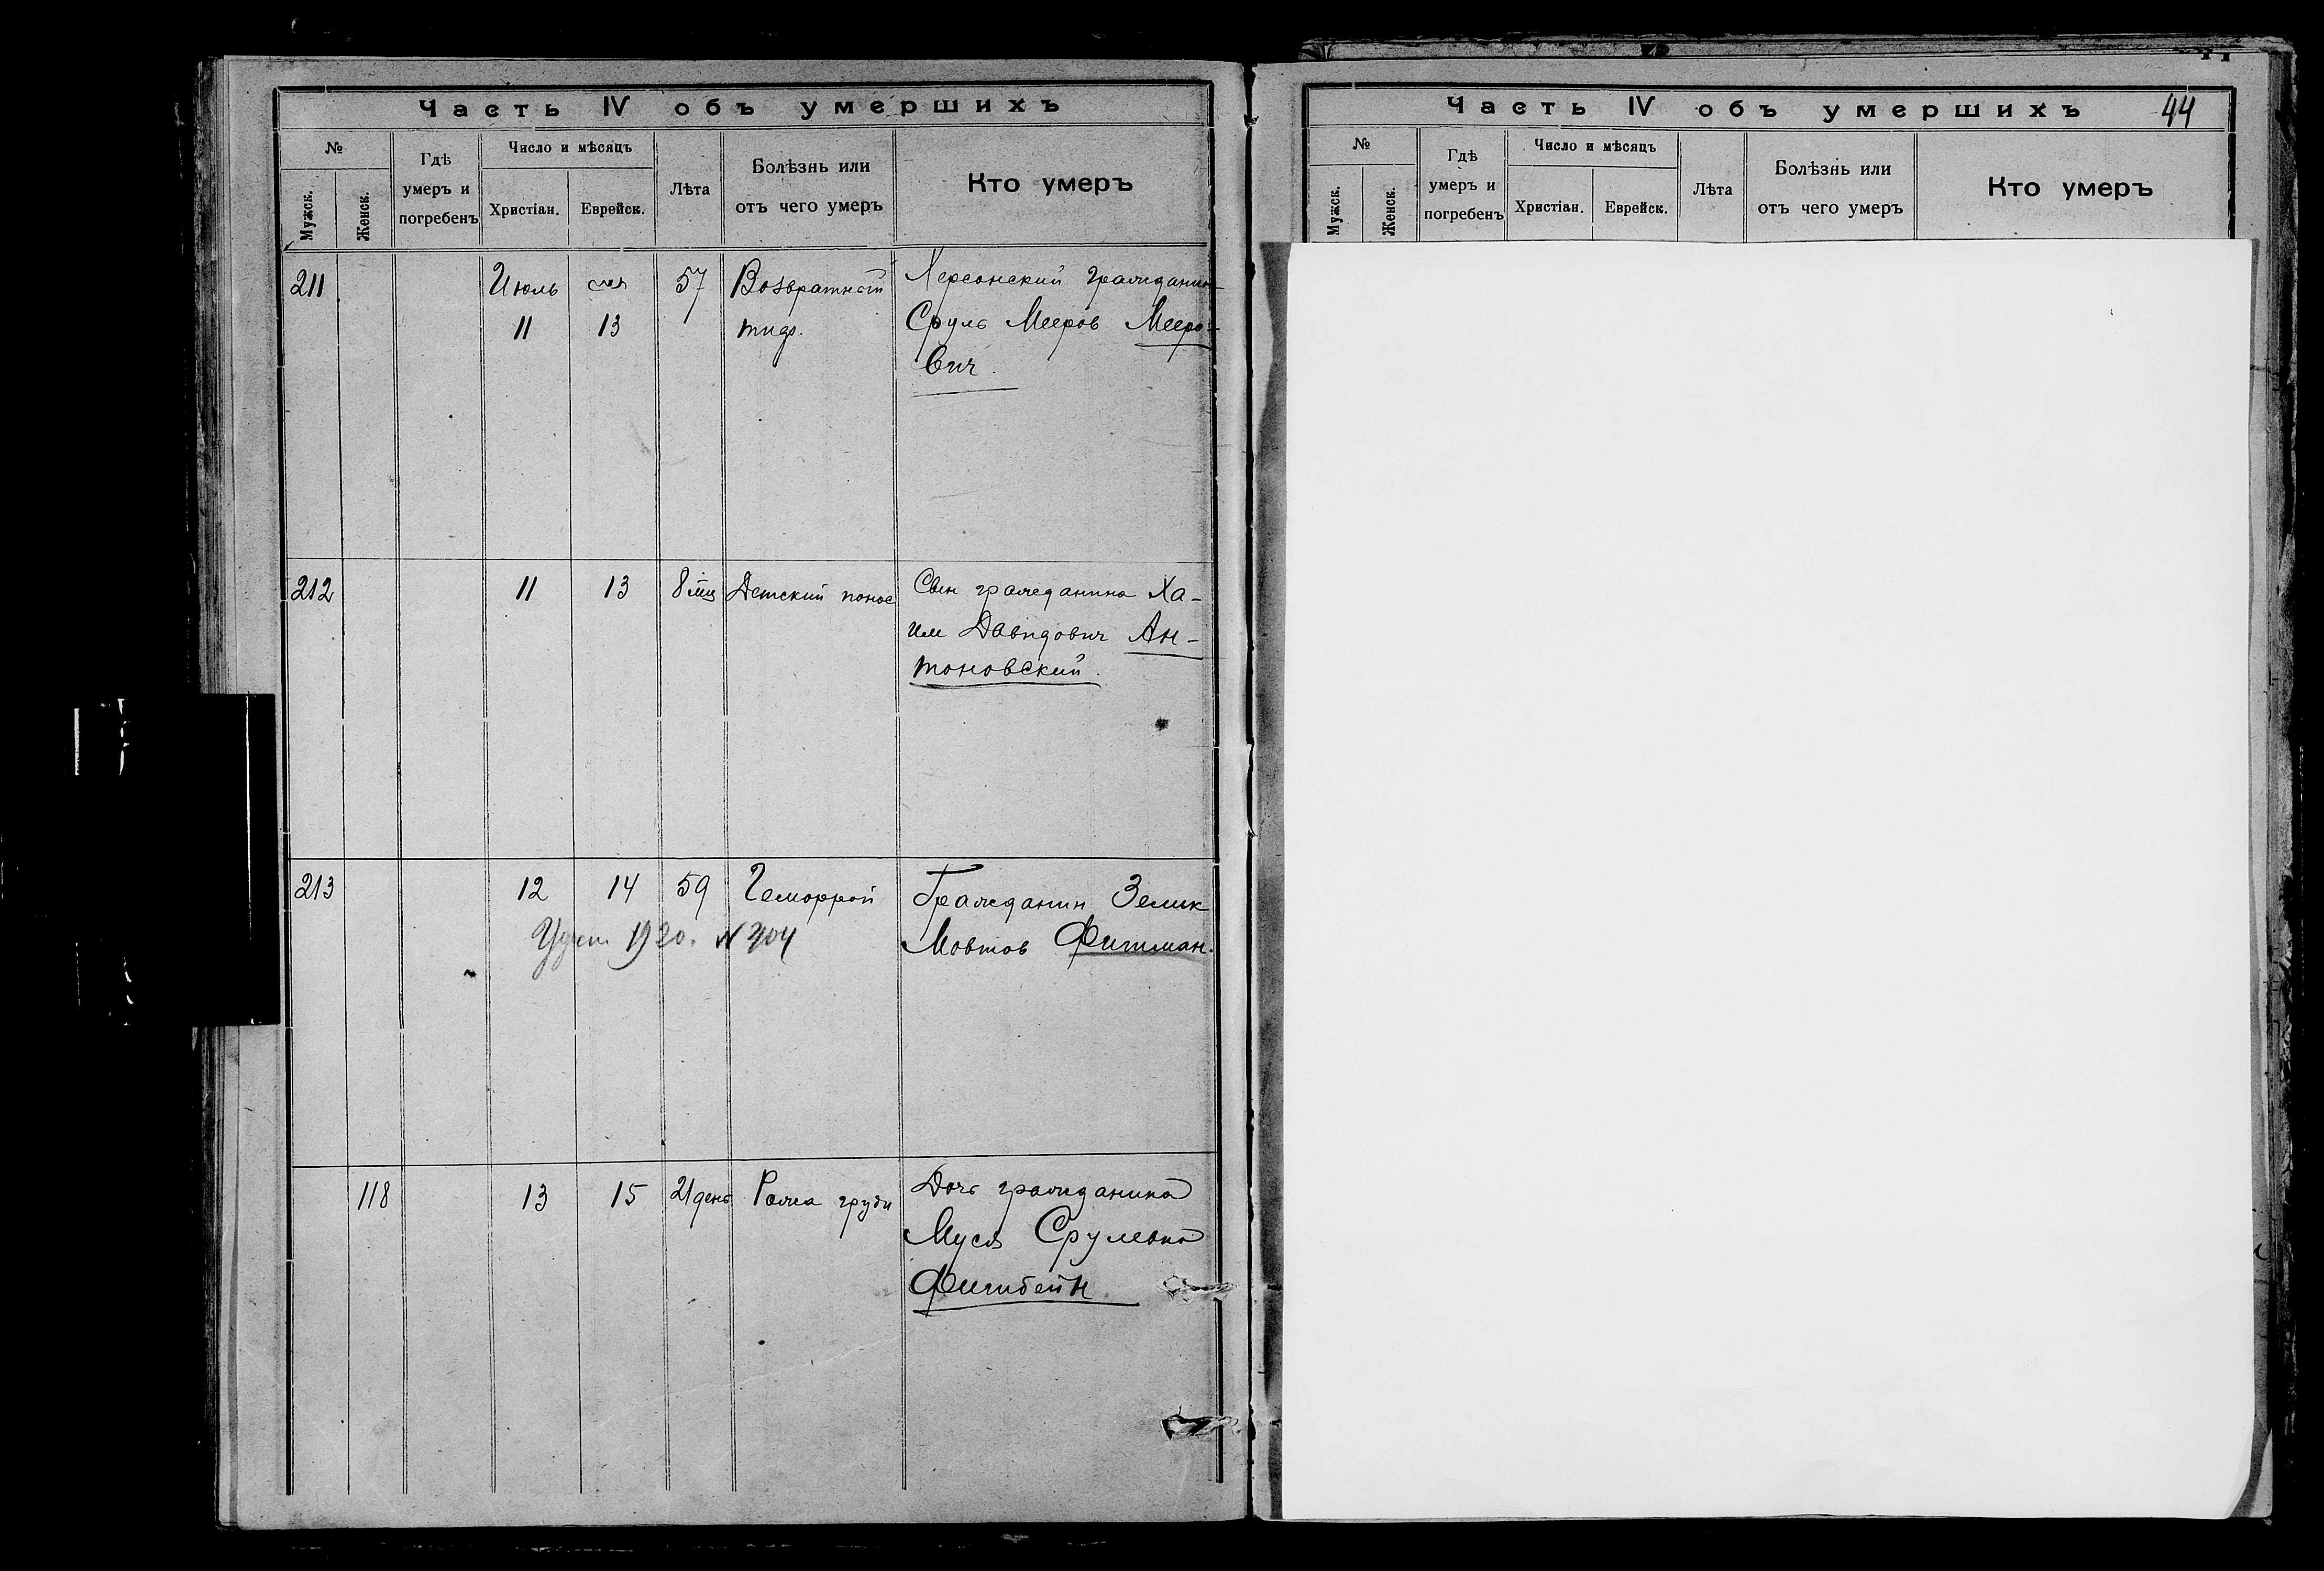 Часть IV объ умершихъ
№
Мужск.
Женск.
Гдѣ
умеръ и
погребенъ
Число и мѣсяцъ
Христіан.
Еврейск.
Лѣта
Болѣзнь или
отъ чего умеръ
Кто умеръ
211
Июль
11
13
57
Возвратный
тиф.
Херсонский гражданин
Сруль Мееров Мееро-
вич.
212
11
13
8 мц
Детский понос
Сын гражданина Ха-
им Давидович Ан-
тоновский.
213
12
14
59
Геморрой
Гражданин Зелик
Мовтов Фитман.
1920. N 304
118
13
15
21 день
Рожа груди
Дочь гражданина
Муся Срулевна
Фитбейн
Часть IV объ умершихъ
44
№
Мужск.
Женск.
Гдѣ
умеръ и
погребенъ
Число и мѣсяцъ
Христіан.
Еврейск.
Лѣта
Болѣзнь или
отъ чего умеръ
Кто умеръ